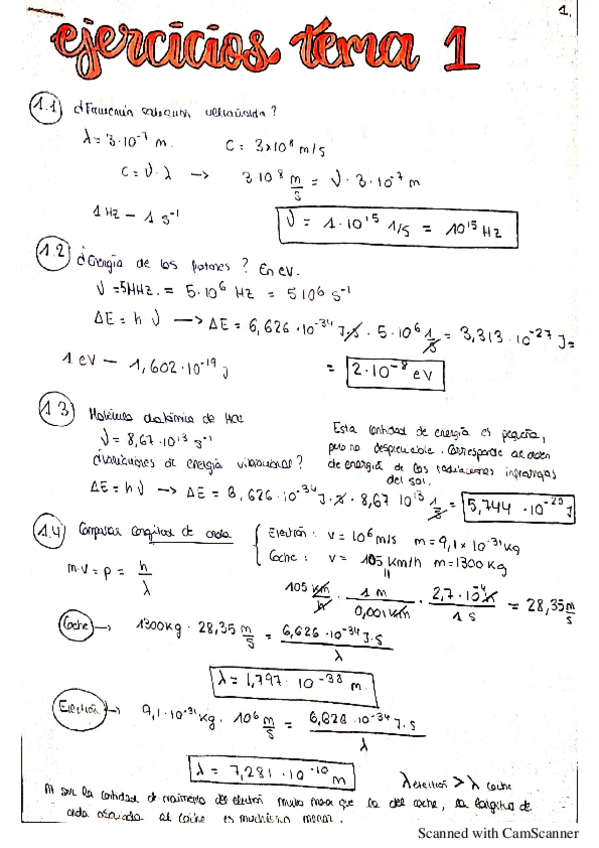 1.
ejercicios tema 1
1.1 ¿Frecuencia radiación ultravioleta?
λ = 3·10⁻⁷ m. C = 3×10⁸ m/s
C = ν·λ → 3 10⁸ m/s = ν · 3·10⁻⁷ m
1 Hz — 1 s⁻¹ ν = 1·10¹⁵ 1/s = 10¹⁵ Hz
1.2 ¿Energía de los fotones? En eV.
ν = 5MHz. = 5·10⁶ Hz = 5 10⁶ s⁻¹
ΔE = h ν → ΔE = 6,626·10⁻³⁴ J·s · 5·10⁶ 1/s = 3,313·10⁻²⁷ J =
1 eV — 1,602·10⁻¹⁹ J = 2·10⁻⁸ eV
1.3 Molécula diatómica de HCl
ν = 8,67·10¹³ s⁻¹
¿Variaciones de energía vibracional?
ΔE = h ν → ΔE = 6,626·10⁻³⁴ J·s · 8,67 10¹³ 1/s = 5,744·10⁻²⁰ J
Esta cantidad de energía es pequeña,
pero no despreciable. Corresponde al orden
de energía de las radiaciones infrarrojas
del sol.
1.4 Comparar longitud de onda { Electrón: v = 10⁶ m/s m = 9,1×10⁻³¹ kg
Coche: v = 105 km/h m = 1300 kg
m·v = p = h/λ
105 km/h · 1 m/0,001 km · 2,7·10⁻⁴ h/1 s = 28,35 m/s
Coche → 1300 kg · 28,35 m/s = 6,626·10⁻³⁴ J·s/λ
λ = 1,797·10⁻³⁸ m.
Electrón → 9,1·10⁻³¹ kg · 10⁶ m/s = 6,626·10⁻³⁴ J·s/λ
λ = 7,281·10⁻¹⁰ m λ electrón > λ coche
Al ser la cantidad de movimiento del electrón mucho menor que la del coche, la longitud de
onda asociada al coche es muchísimo menor.
Scanned with CamScanner